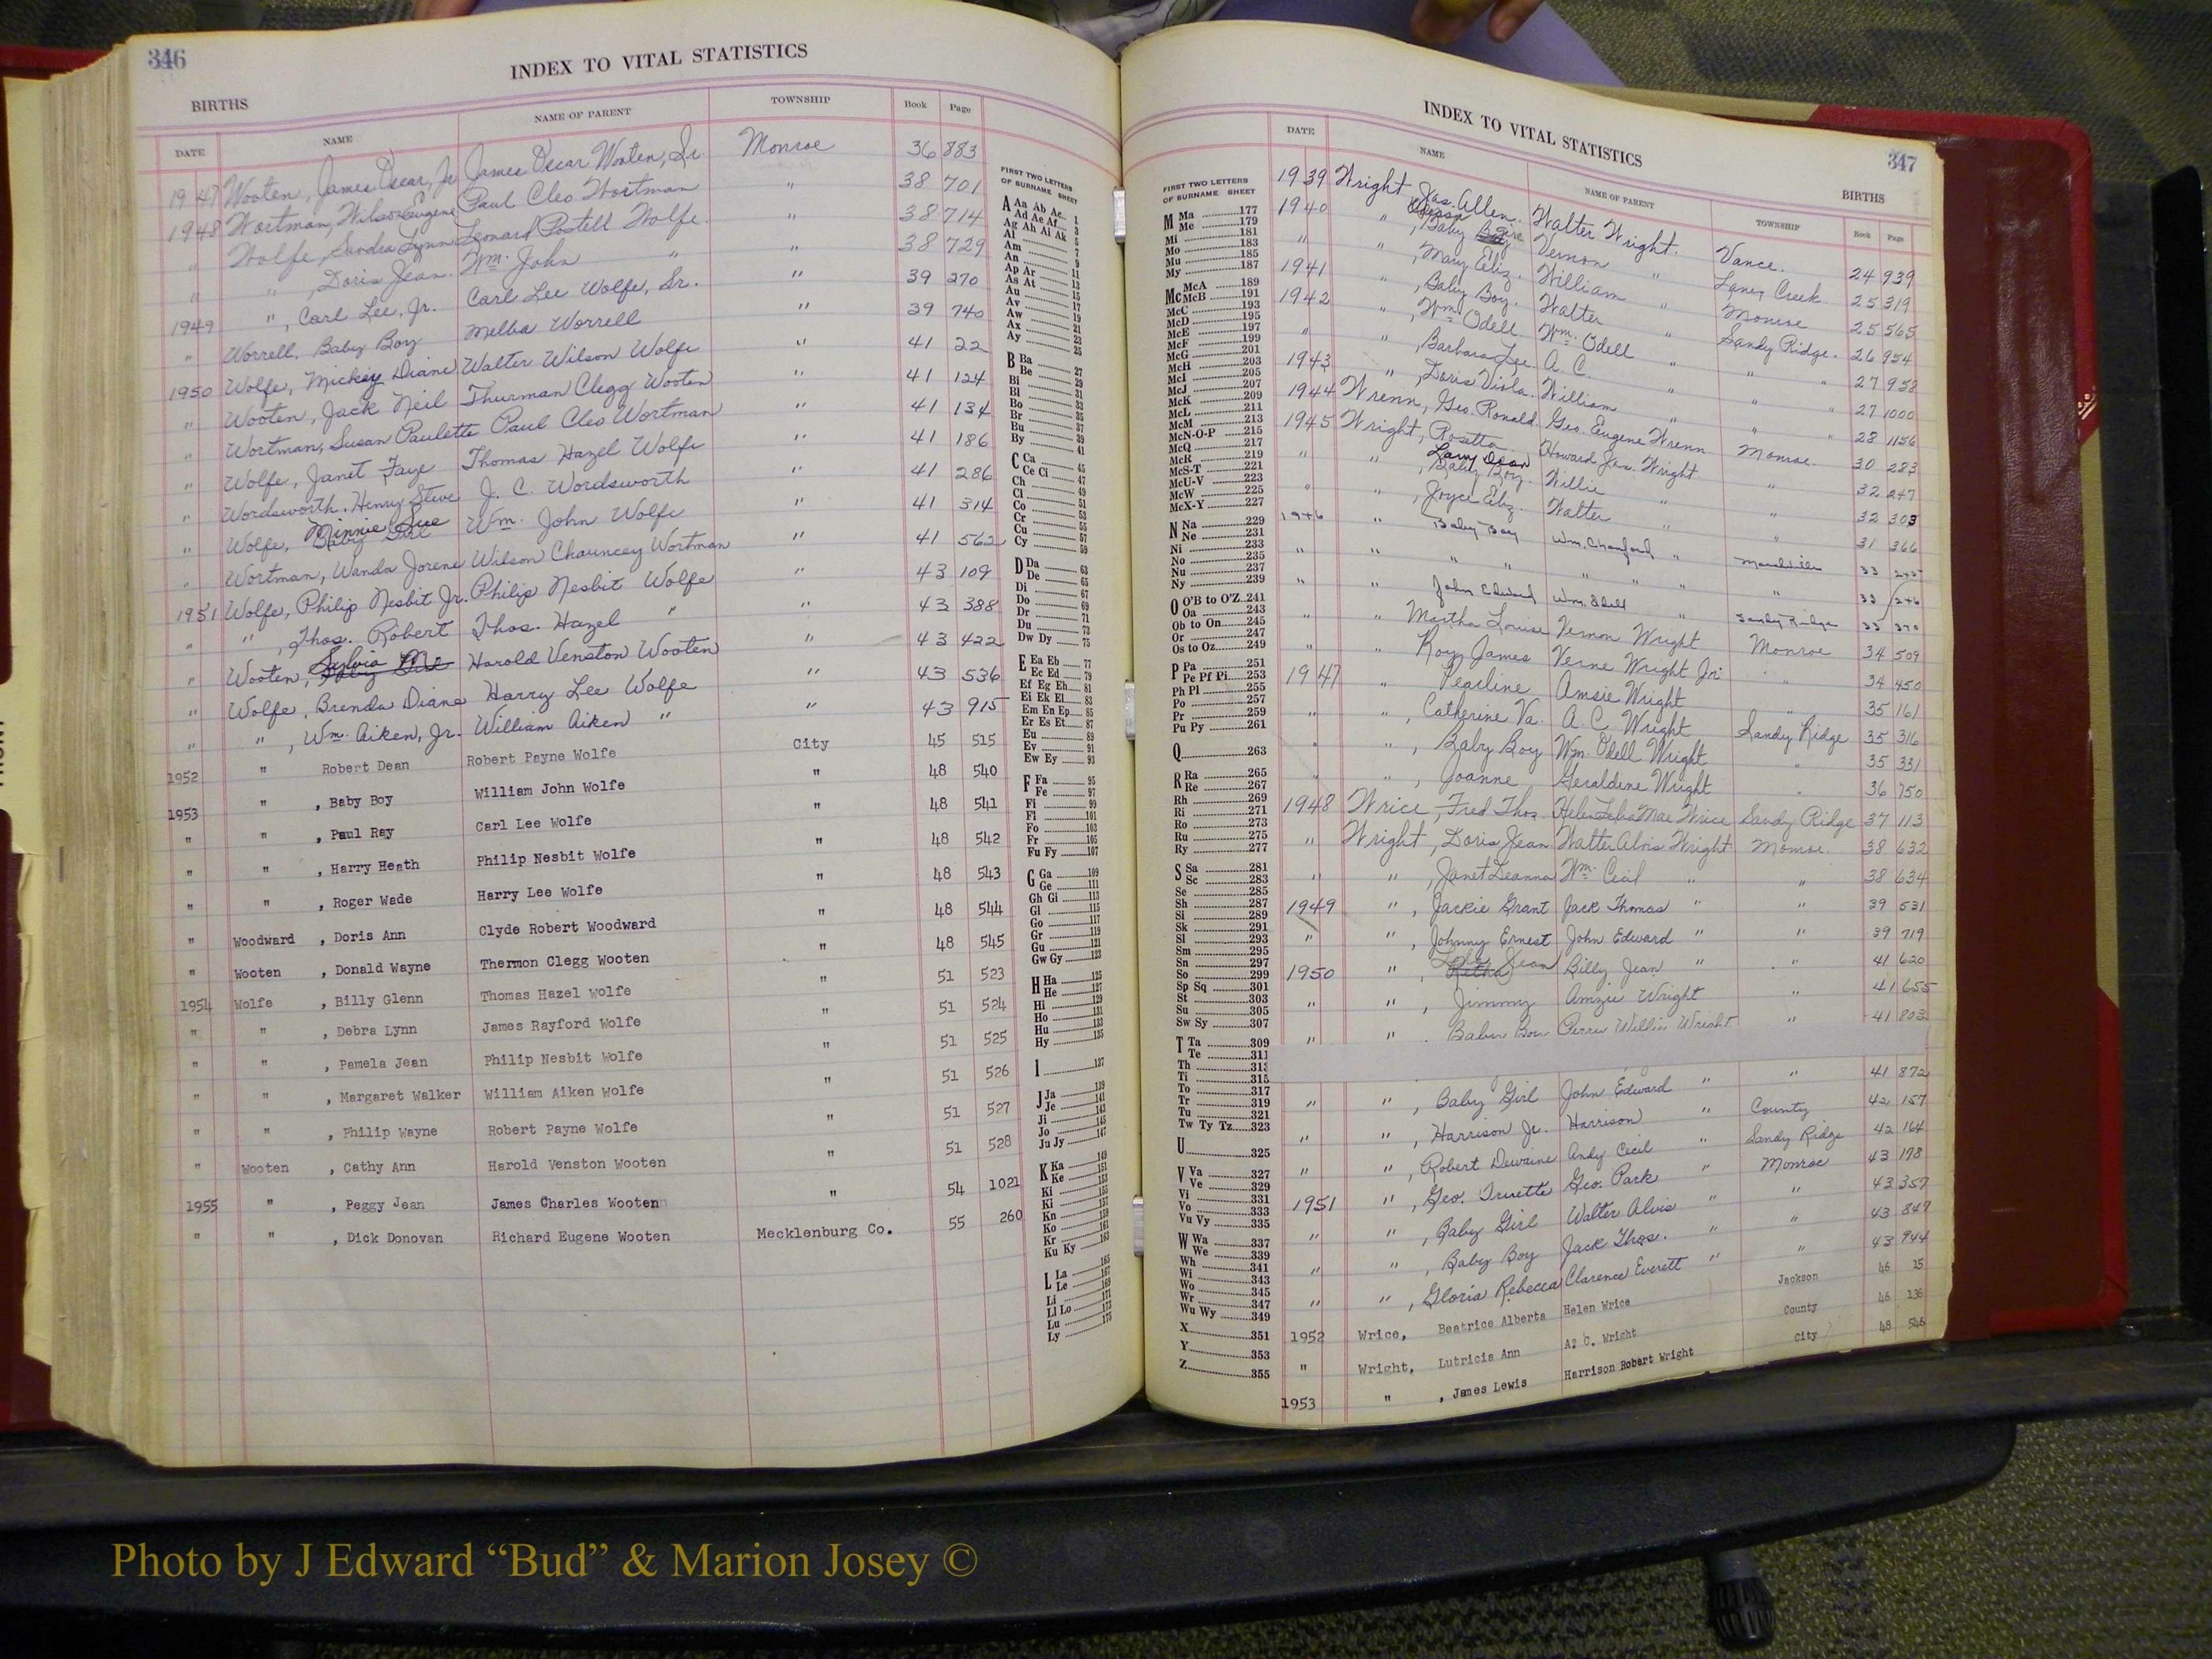 346
INDEX TO VITAL STATISTICS
BIRTHS
DATE NAME NAME OF PARENT TOWNSHIP Book Page
1947 Wooten, James Oscar, Jr James Oscar Wooten, Sr. Monroe 36 883
1948 Wortman, Wilson Eugene Paul Cleo Wortman " 38 701
" Wolfe, Sandra Lynn Leonard Postell Wolfe. " 38 714
" " , Doris Jean. Wm. John " " 38 729
1949 " , Carl Lee, Jr. Carl Lee Wolfe, Sr. " 39 270
" Worrell, Baby Boy Melba Worrell " 39 740
1950 Wolfe, Mickey Diane Walter Wilson Wolfe " 41 22
" Wooten, Jack Neil Thurman Clegg Wooten " 41 124
" Wortman, Susan Paulette Paul Cleo Wortman " 41 134
" Wolfe, Janet Faye Thomas Hazel Wolfe " 41 186
" Wordsworth, Henry Steve J. C. Wordsworth " 41 286
" Wolfe, Minnie Sue Baby Girl Wm. John Wolfe " 41 314
" Wortman, Wanda Jorene Wilson Chauncey Wortman " 41 562
1951 Wolfe, Philip Nesbit Jr. Philip Nesbit Wolfe " 43 109
" " , Thos. Robert Thos. Hazel " " 43 388
" Wooten, Sylvia Harold Venston Wooten " 43 422
" Wolfe, Brenda Diane Harry Lee Wolfe " 43 536
" " , Wm. Aiken, Jr. William Aiken " " 43 915
1952 " Robert Dean Robert Payne Wolfe City 45 515
1953 " , Baby Boy William John Wolfe " 48 540
" " , Paul Ray Carl Lee Wolfe " 48 541
" " , Harry Heath Philip Nesbit Wolfe " 48 542
" " , Roger Wade Harry Lee Wolfe " 48 543
" Woodward , Doris Ann Clyde Robert Woodward " 48 544
" Wooten , Donald Wayne Thermon Clegg Wooten " 48 545
1954 Wolfe , Billy Glenn Thomas Hazel Wolfe " 51 523
" " , Debra Lynn James Rayford Wolfe " 51 524
" " , Pamela Jean Philip Nesbit Wolfe " 51 525
" " , Margaret Walker William Aiken Wolfe " 51 526
" " , Philip Wayne Robert Payne Wolfe " 51 527
" Wooten , Cathy Ann Harold Venston Wooten " 51 528
1955 " , Peggy Jean James Charles Wooten " 54 1021
" " , Dick Donovan Richard Eugene Wooten Mecklenburg Co. 55 260
FIRST TWO LETTERS
OF SURNAME SHEET
A Aa Ab Ac 1
Ad Ae Af 3
Ag Ah Ai Ak 5
Al 7
Am 9
An 11
Ap Ar 13
As At 15
Au 17
Av 19
Aw 21
Ax 23
Ay 25
B Ba 27
Be 29
Bi 31
Bl 33
Bo 35
Br 37
Bu 39
By 41
C Ca 45
Ce Ci 47
Ch 49
Cl 51
Co 53
Cr 55
Cu 57
Cy 59
D Da 63
De 65
Di 67
Do 69
Dr 71
Du 73
Dw Dy 75
E Ea Eb 77
Ec Ed 79
Ef Eg Eh 81
Ei Ek El 83
Em En Ep 85
Er Es Et 87
Eu 89
Ev 91
Ew Ey 93
F Fa 95
Fe 97
Fi 99
Fl 101
Fo 103
Fr 105
Fu Fy 107
G Ga 109
Ge 111
Gh Gi 113
Gl 115
Go 117
Gr 119
Gu 121
Gw Gy 123
H Ha 125
He 127
Hi 129
Ho 131
Hu 133
Hy 135
I 137
J Ja 139
Je 141
Ji 143
Jo 145
Ju Jy 147
K Ka 149
Ke 151
Ki 153
Kl 155
Kn 157
Ko 159
Kr 161
Ku Ky 163
L La 165
Le 167
Li 171
Ll Lo 172
Lu 173
Ly 175
347
INDEX TO VITAL STATISTICS
BIRTHS
FIRST TWO LETTERS
OF SURNAME SHEET
M Ma 177
Me 179
Mi 181
Mo 183
Mu 185
My 187
Mc McA 189
McB 191
McC 193
McD 195
McE 197
McF 199
McG 201
McH 203
McI 205
McJ 207
McK 209
McL 211
McM 213
McN-O-P 215
McQ 217
McR 219
McS-T 221
McU-V 223
McW 225
McX-Y 227
N Na 229
Ne 231
Ni 233
No 235
Nu 237
Ny 239
O O'B to O'Z 241
Oa 243
Ob to On 245
Or 247
Os to Oz 249
P Pa 251
Pe Pf Pi 253
Ph Pl 255
Po 257
Pr 259
Pu Py 261
Q 263
R Ra 265
Re 267
Rh 269
Ri 271
Ro 273
Ru 275
Ry 277
S Sa 281
Sc 283
Se 285
Sh 287
Si 289
Sk 291
Sl 293
Sm 295
Sn 297
So 299
Sp Sq 301
St 303
Su 305
Sw Sy 307
T Ta 309
Te 311
Th 313
Ti 315
To 317
Tr 319
Tu 321
Tw Ty Tz 323
U 325
V Va 327
Ve 329
Vi 331
Vo 333
Vu Vy 335
W Wa 337
We 339
Wh 341
Wi 343
Wo 345
Wr 347
Wu Wy 349
X 351
Y 353
Z 355
DATE NAME NAME OF PARENT TOWNSHIP Book Page
1939 Wright Jas. Allen. Walter Wright. Vance. 24 939
1940 " , Baby Vernon " Lanes Creek 25 319
" " , Mary Eliz. William " Monroe 25 565
1941 " , Baby Boy. Walter " Sandy Ridge. 26 954
1942 " , Wm. Odell Wm. Odell " " 27 958
" " , Barbara Lee A. C. " " 27 1000
1943 " , Doris Viola. William " " 28 1156
1944 Wrenn, Geo. Ronald Geo. Eugene Wrenn. Monroe. 30 283
1945 Wright, Rosetta Howard Jas. Wright. " 32 247
" " , Larry Dean Baby Boy. Willie " " 32 303
" " , Joyce Eliz. Walter " " 31 366
1946 " Baby Boy Wm. Crawford " Marshville 33 245
" " " " " " 33 246
" " John Edward Wm. Odell " Sandy Ridge 33 370
" " Martha Louise Vernon Wright Monroe 34 509
" " Roy James Verne Wright Jr. " 34 450
1947 " Pearline Amsie Wright " 35 161
" " , Catherine Va. A. C. Wright Sandy Ridge 35 316
" " , Baby Boy Wm. Odell Wright " 35 331
" " , Joanne Geraldine Wright " 36 750
1948 Wrice, Fred Thos. Helen Mae Wrice Sandy Ridge 37 113
" Wright, Doris Jean Walter Alvis Wright. Monroe. 38 632
" " , Janet Deanna Wm. Cecil " " 38 634
1949 " , Jackie Grant Jack Thomas " " 39 531
" " , Johnny Ernest John Edward " " 39 719
1950 " , Jean Billy Jean " " 41 620
" " , Jimmy Amzie Wright " 41 655
" " . Baby Boy Willie Wright " 41 803
" " , Baby Girl John Edward " " 41 872
" " , Harrison Jr. Harrison " County 42 157
" " , Robert Dewaine Andy Cecil " Sandy Ridge 42 164
1951 " , Geo. Truette Geo. Park " Monroe 43 178
" " , Baby Girl Walter Alvis " " 43 357
" " , Baby Boy Jack Thos. " " 43 847
" " , Gloria Rebecca Clarence Everett " " 43 944
1952 Wrice, Beatrice Alberta Helen Wrice Jackson 46 15
" Wright, Lutricia Ann A. C. Wright County 46 136
1953 " , James Lewis Harrison Robert Wright City 48 546
Photo by J Edward “Bud” & Marion Josey ©